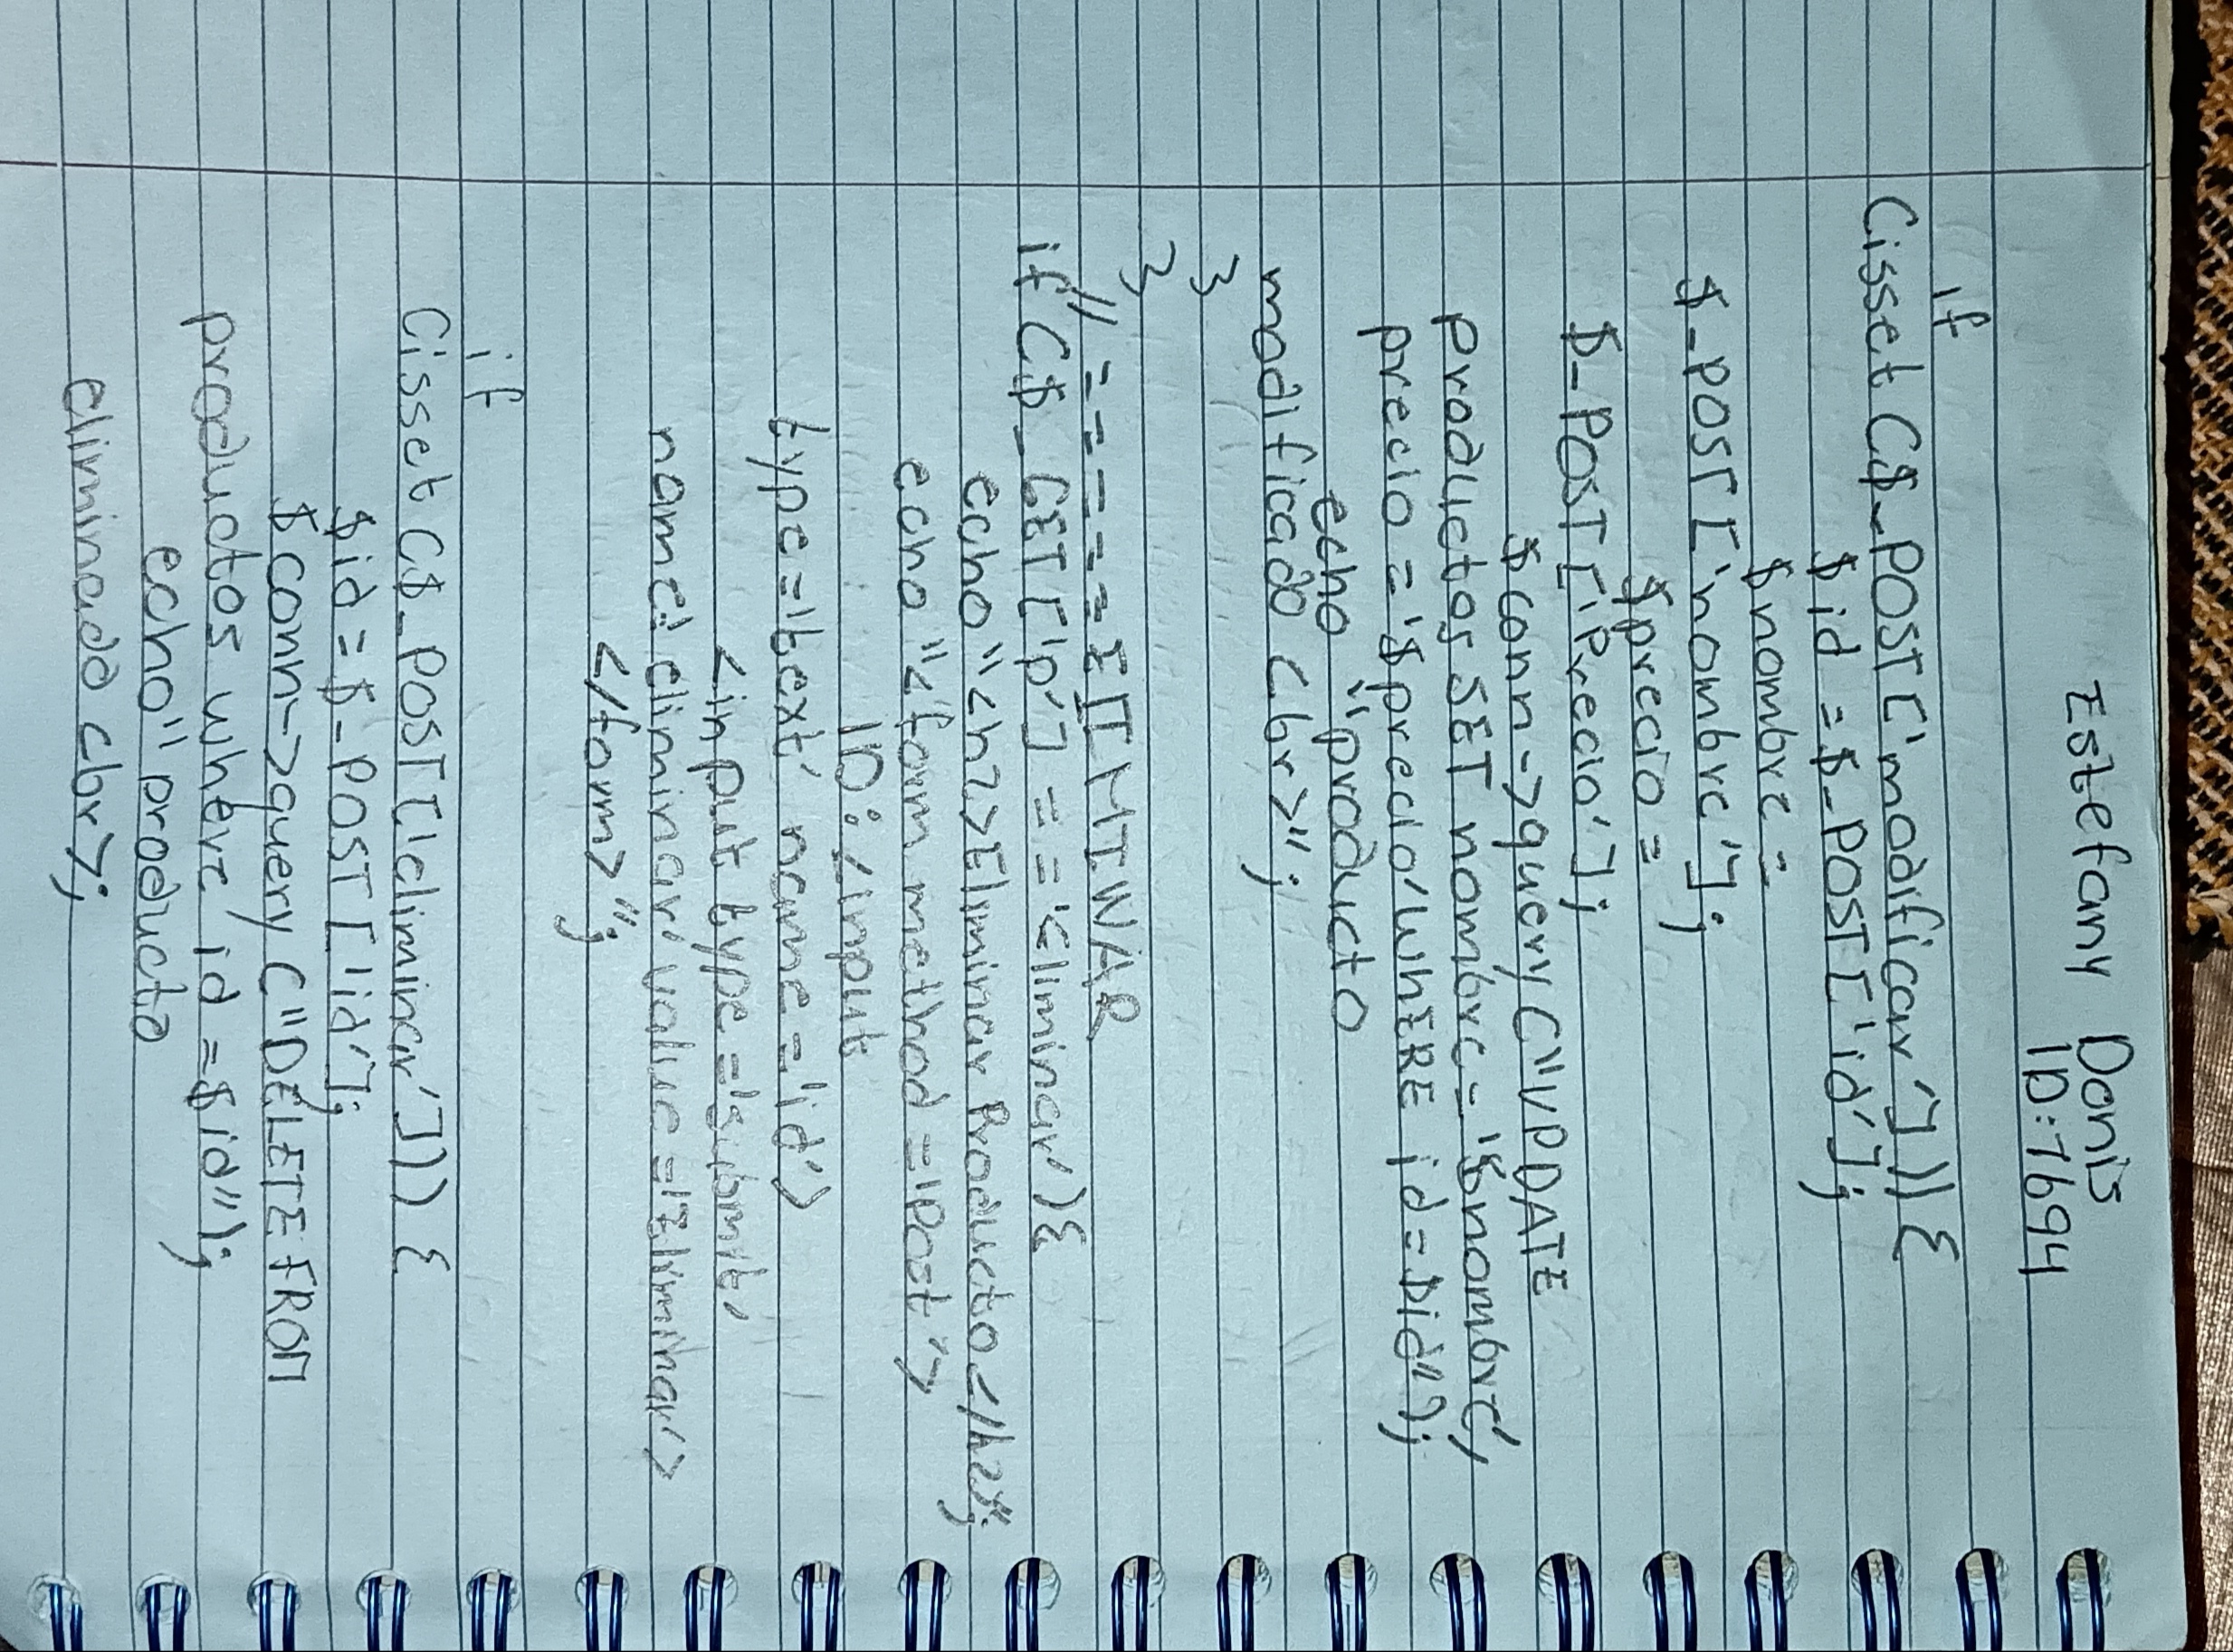 Estefany Donis
ID: 7694
if
(isset ($_POST['modificar'])){
$id = $_POST['id'];
$nombre =
$_POST['nombre'];
$precio =
$_POST['Precio'];
$conn->query("UPDATE
productos SET nombre = '$nombre',
precio = '$precio' WHERE id = $id");
echo "producto
modificado <br>";
}
}
//======ELIMINAR
if ($_GET['p'] == 'Eliminar'){
echo "<h2>Eliminar Producto</h2>";
echo "<form method='post'>
ID: <input
type='text' name='id'>
<input type='submit'
name='eliminar' value='Eliminar'>
</form>";
if
(isset ($_POST['eliminar'])) {
$id = $_POST['id'];
$conn->query ("DELETE FROM
productos where id = $id");
echo "producto
eliminado <br>;